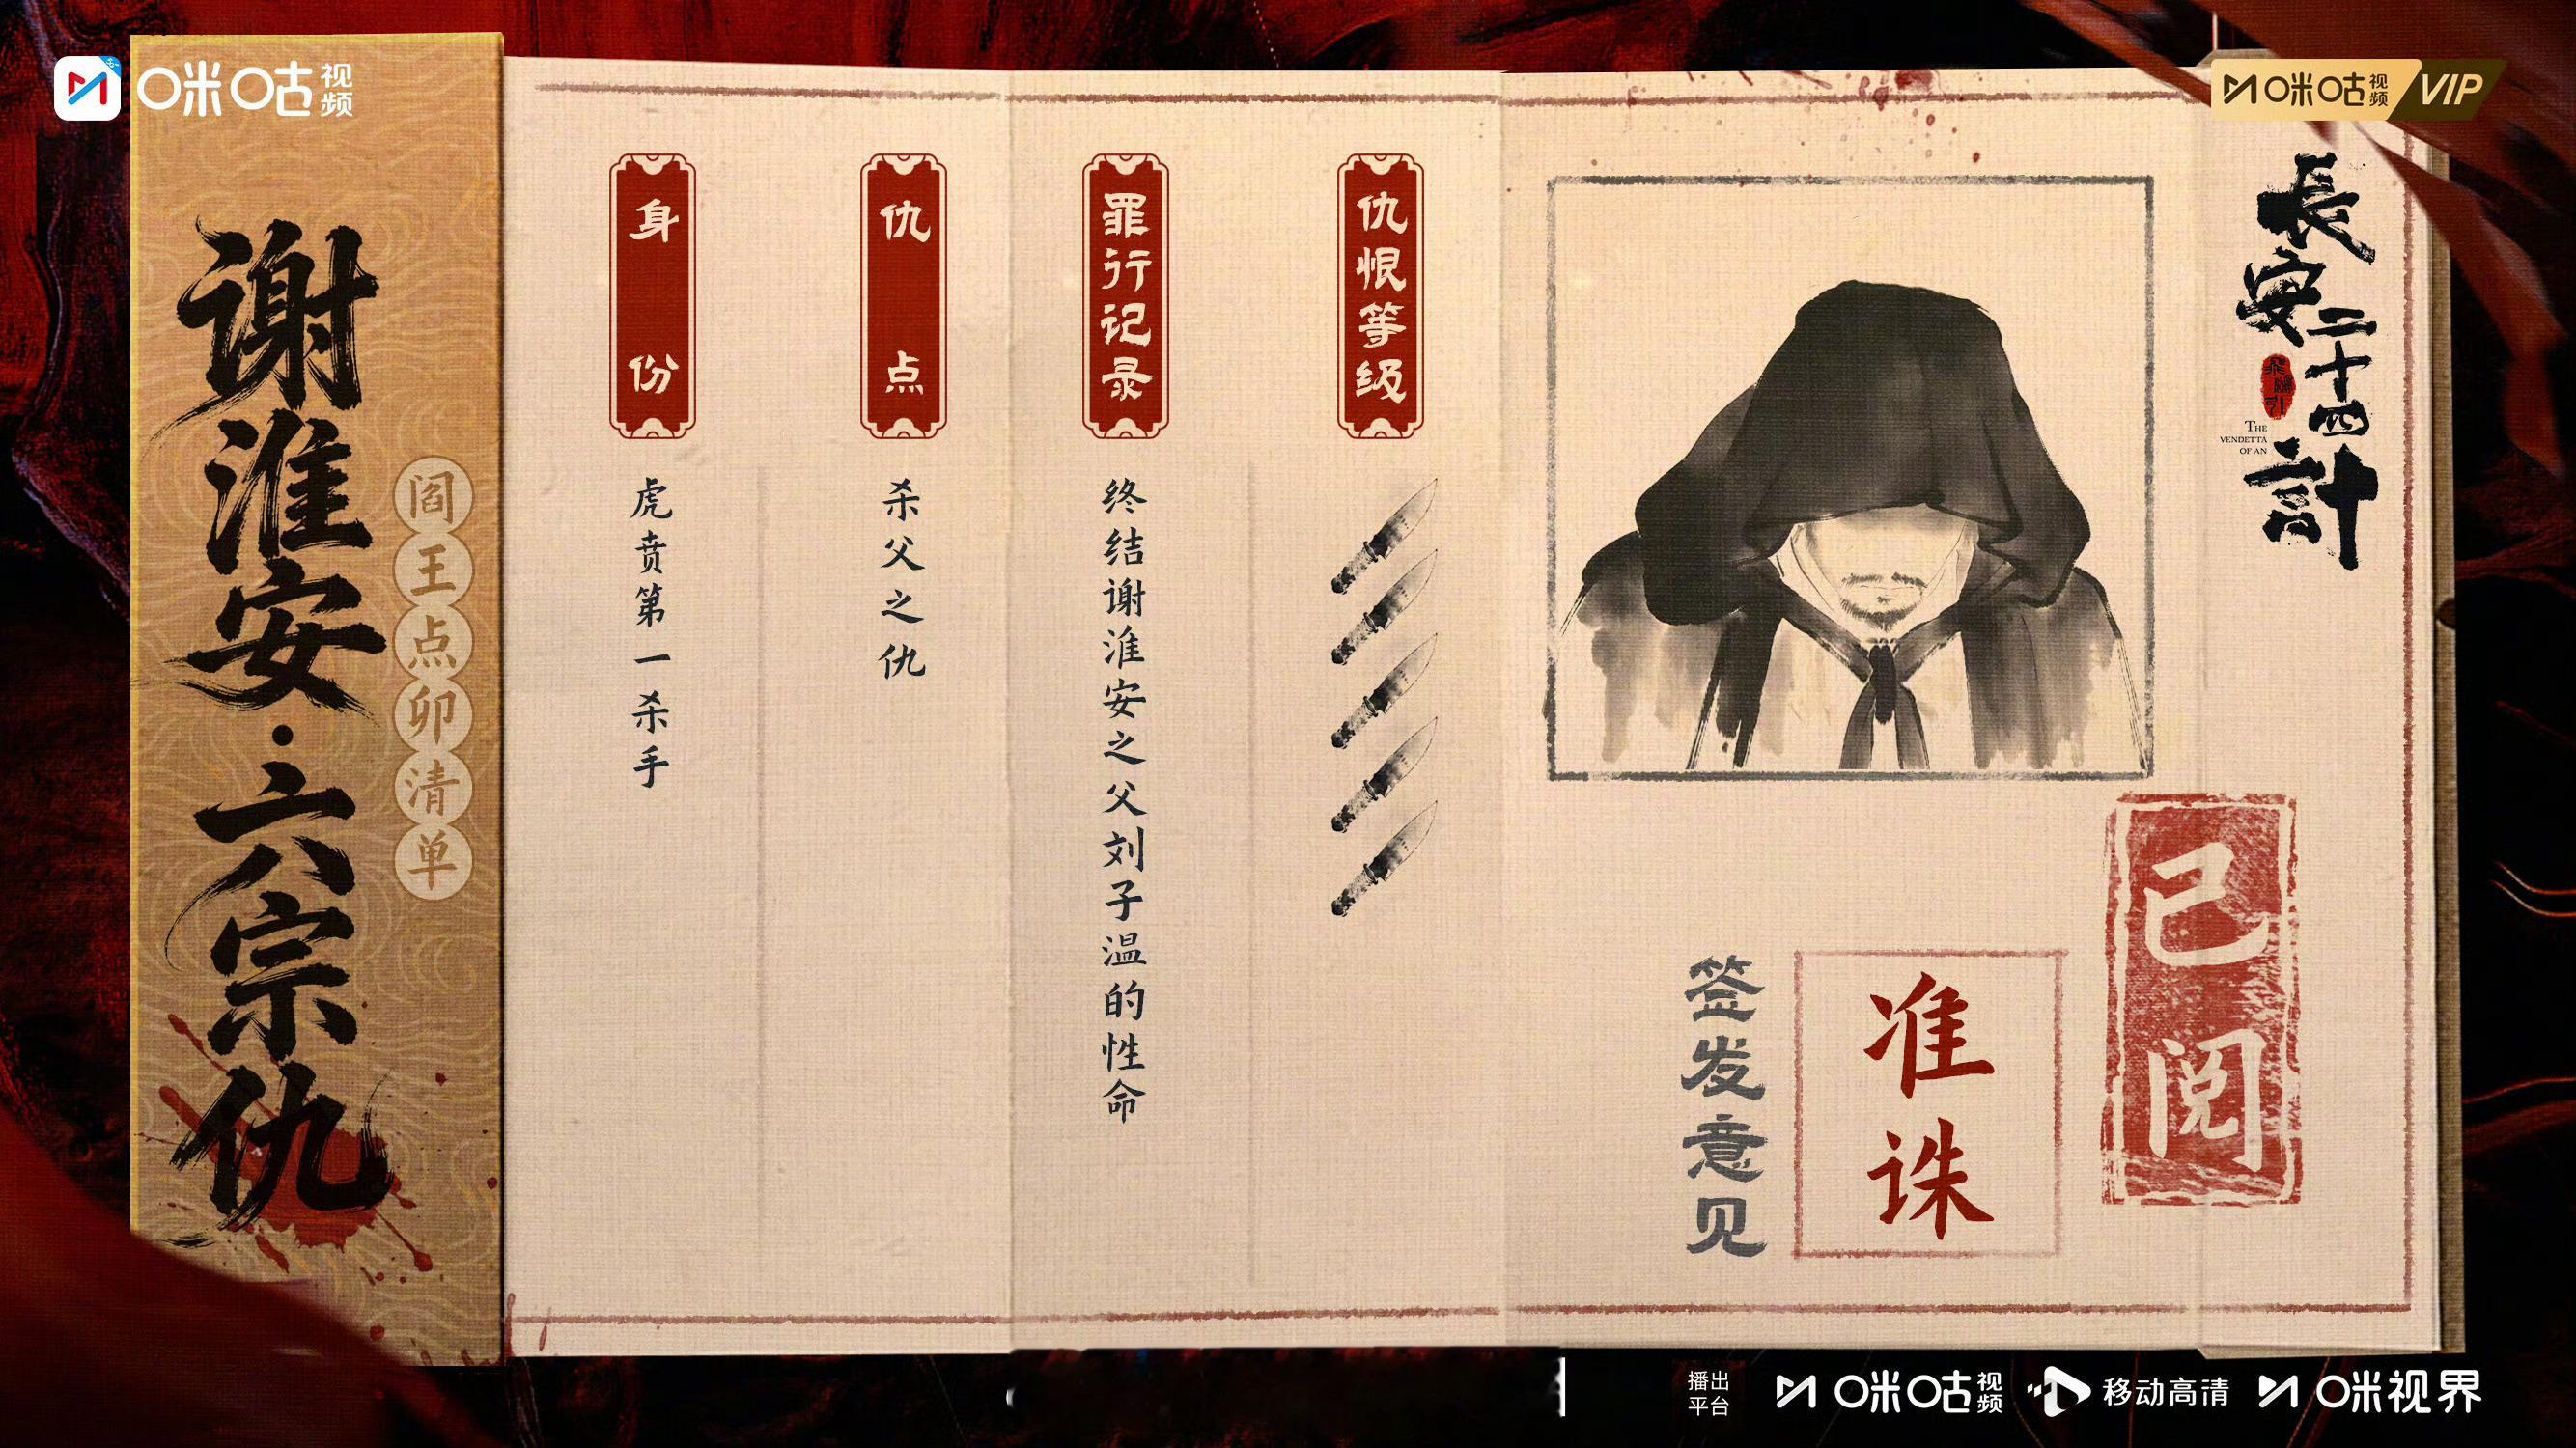 咪咕视频
咪咕视频 VIP
谢淮安·六宗仇
阎王点卯清单
身份
虎贲第一杀手
仇点
杀父之仇
罪行记录
终结谢淮安之父刘子温的性命
仇恨等级
長安二十四計
THE
VENDETTA
OF AN
签发意见
准诛
已阅
播出平台
咪咕视频
移动高清
咪视界